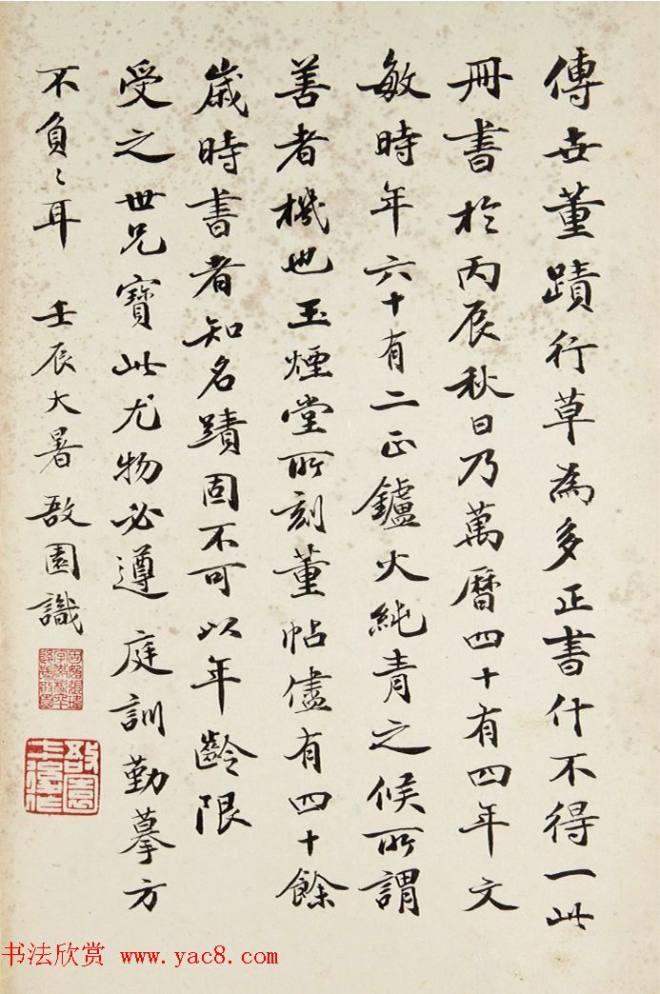 傳世董蹟行草為多正書什不得一此
冊書於丙辰秋日乃萬曆四十有四年文
敏時年六十有二正鑪火純青之候所謂
善者機也玉煙堂所刻董帖儘有四十餘
歲時書者知名蹟固不可以年齡限
受之世兄寶此尤物必遵庭訓勤摹方
不負〻耳 壬辰大暑敔園識
書法欣赏 www.yac8.com